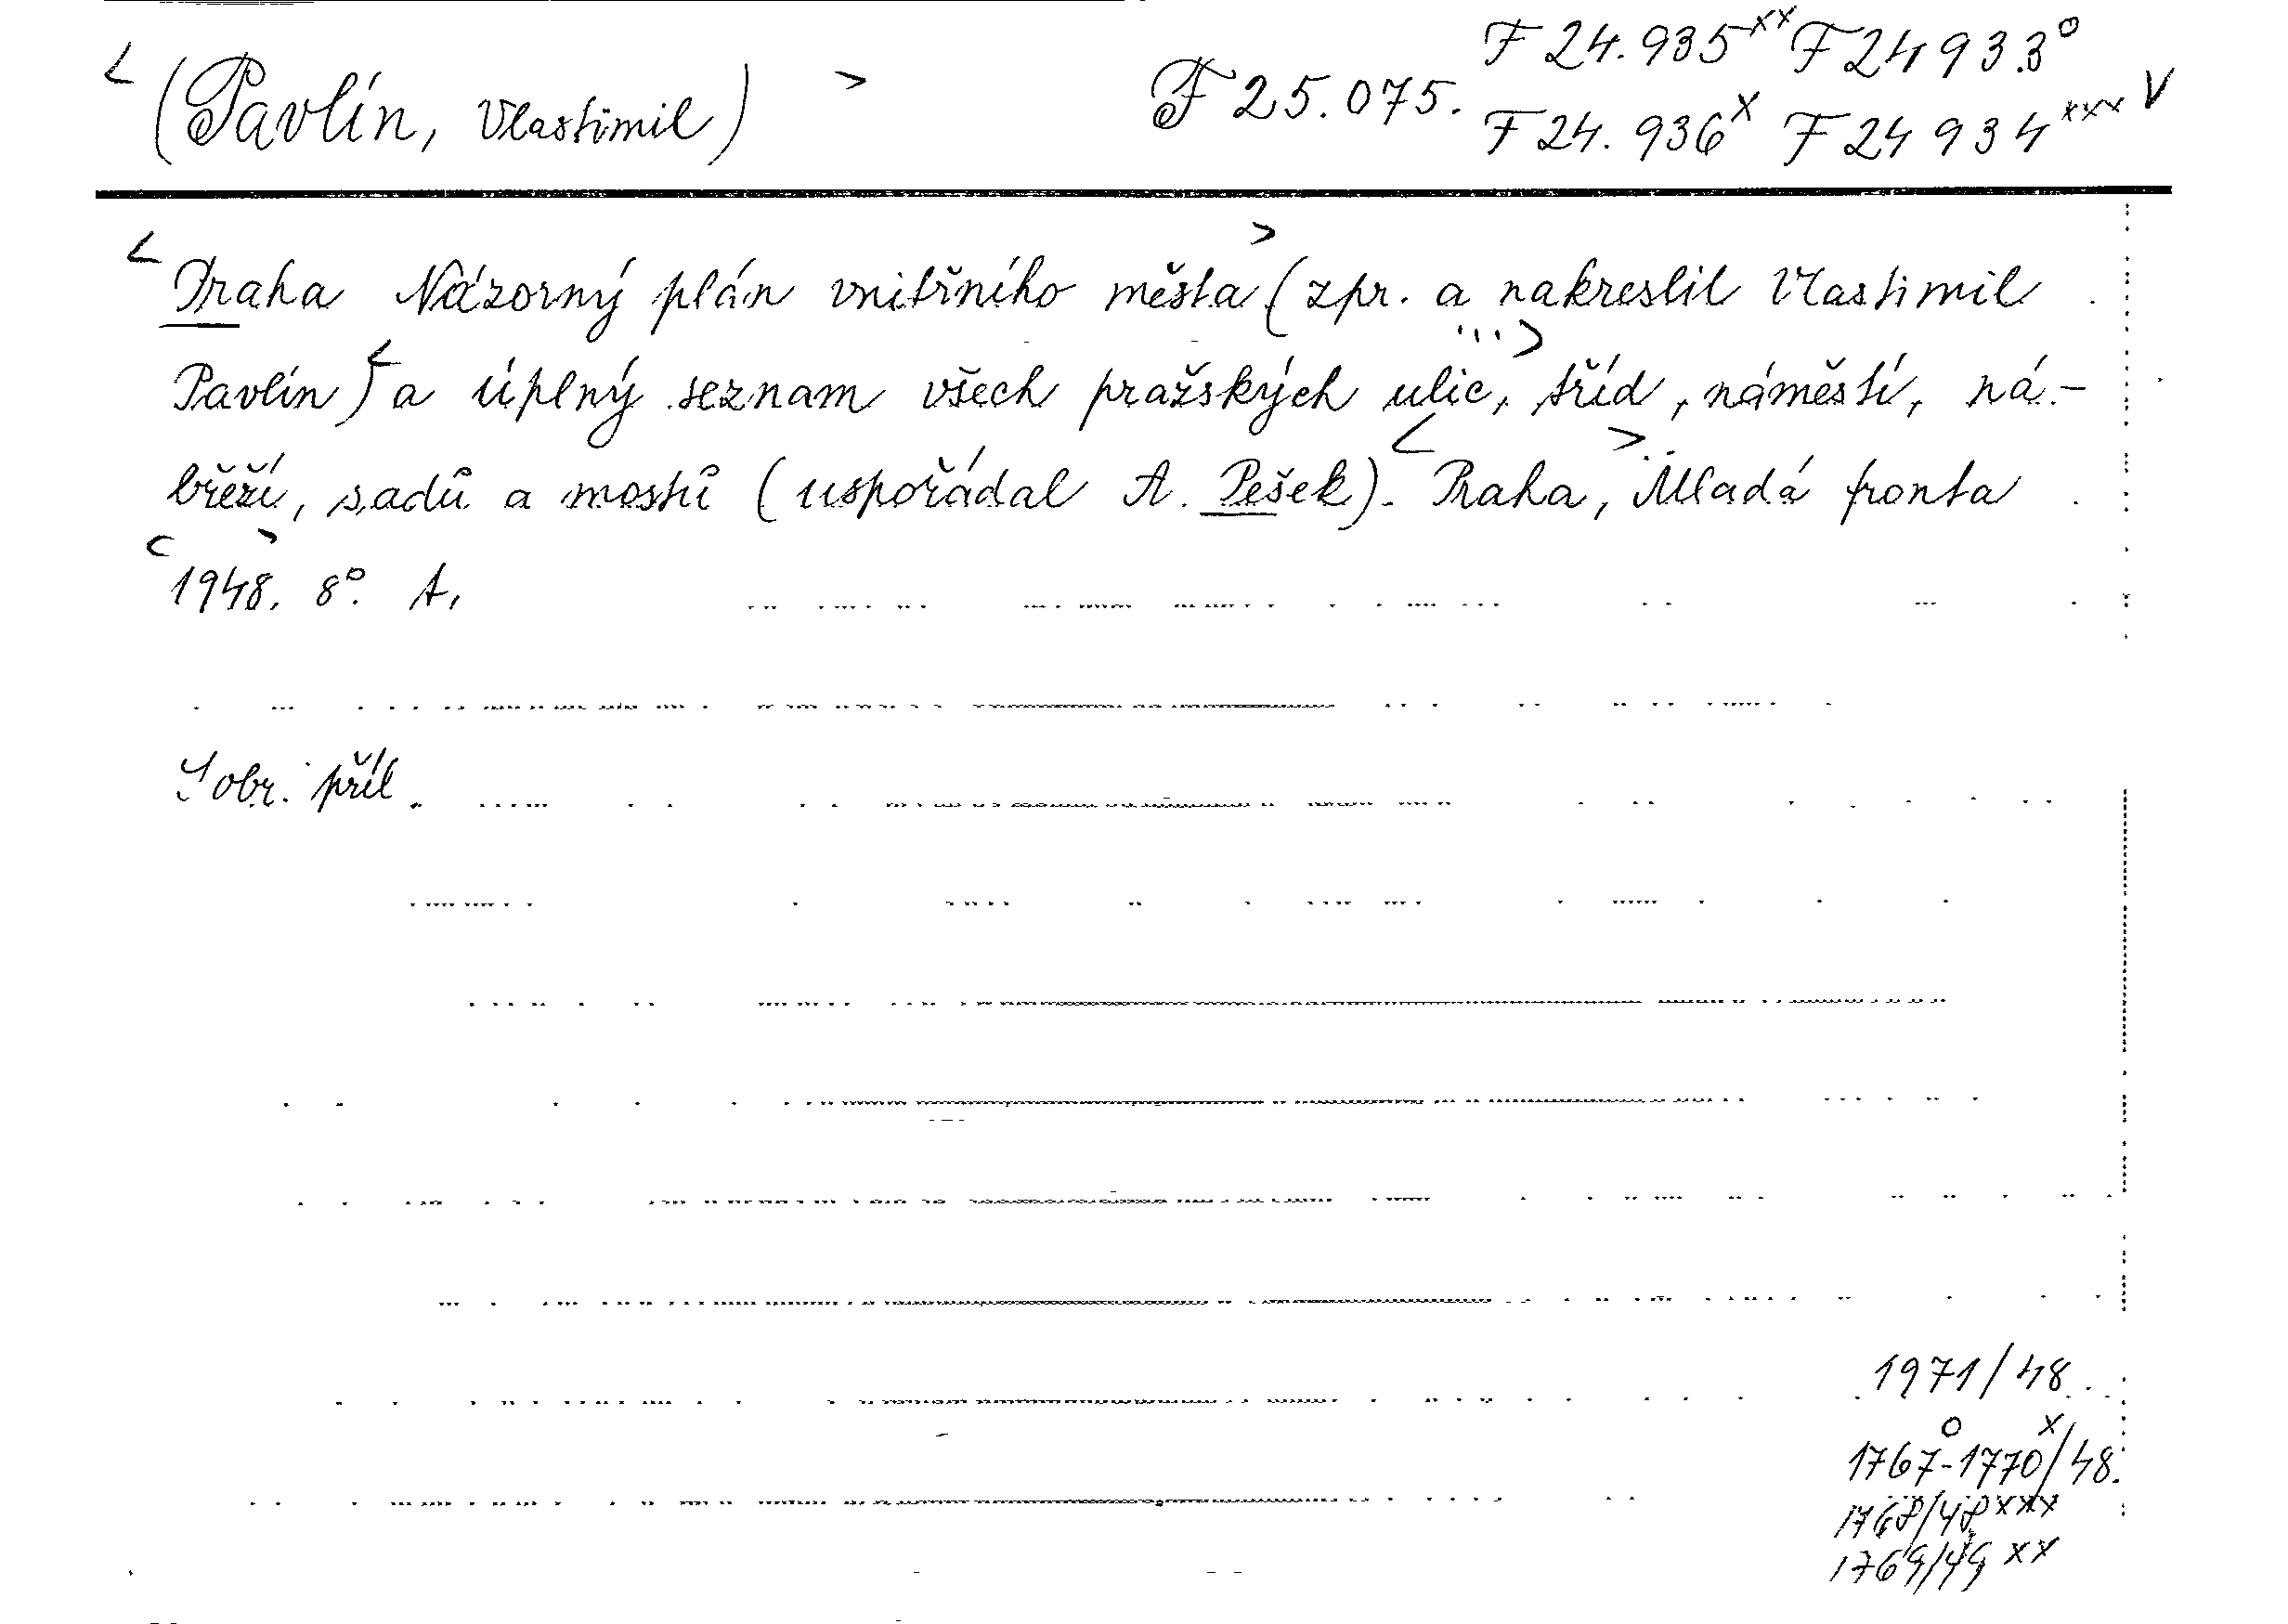 F 24.935ˣˣ F 24 933°
< (Pavlín, Vlastimil) > F 25.075. F 24.936ˣ F 24 934ˣˣˣ V
< Praha Názorný plán vnitřního města > (zpr. a nakreslil Vlastimil
Pavlín) < a úplný seznam všech pražských ulic, ... > tříd, náměstí, ná-
břeží, sadů a mostů (uspořádal A. Pešek). < Praha, > Mladá fronta
< 1948. > 8°. A.
S obr. příl.
1971/48.
1767°-1770ˣ/48.
1768/48 xxx
1769/49 xx